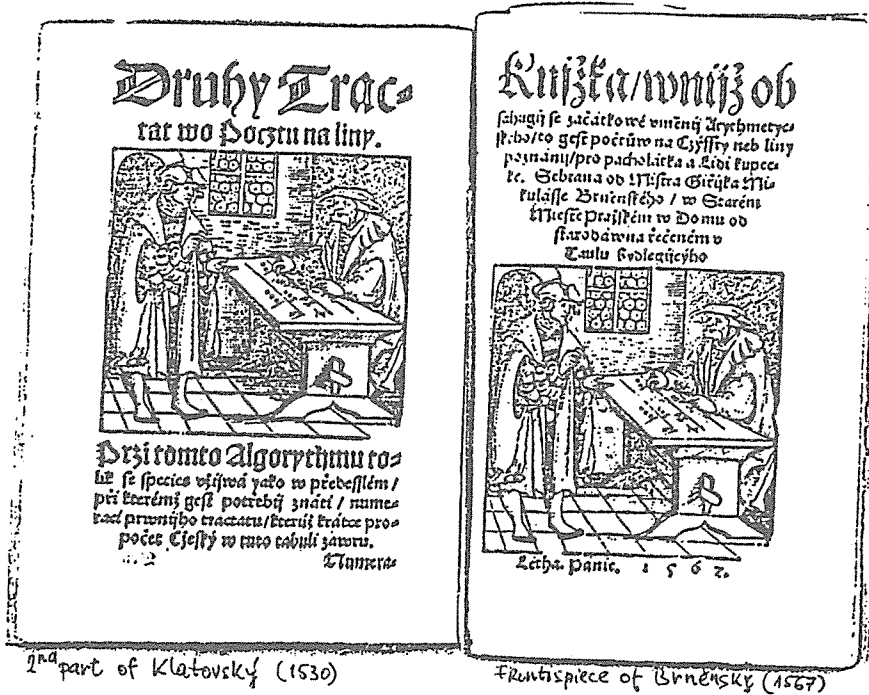 Druhy Trac-
tat wo Pocztu na liny.
Przi tomto Algorythmu to-
lik se species vžijwá yako w předesslém /
při kterémž gest potřebij znáti / nume-
racý prwnijho tractatu / kterúž krátce pro-
počet Cžeský w tuto tabuli zawru.
Numera-
2nd part of Klatovský (1530)
Knijžka / wnijž ob
sahugij se začátkowé vměnij Arythmetyc-
kého / to gest počtůw na Cžyffry neb liny
poznánij / pro pacholátka a Lidi kupec-
ké. Sebrana od Mistra Giřijka Mi-
kulásse Brněnského / w Starém
Miestě Pražském w Domu od
starodáwna řečeném v
Taulu Bydlegijcýho
Létha. Panie. 1 5 6 7.
Frontispiece of Brněnský (1567)